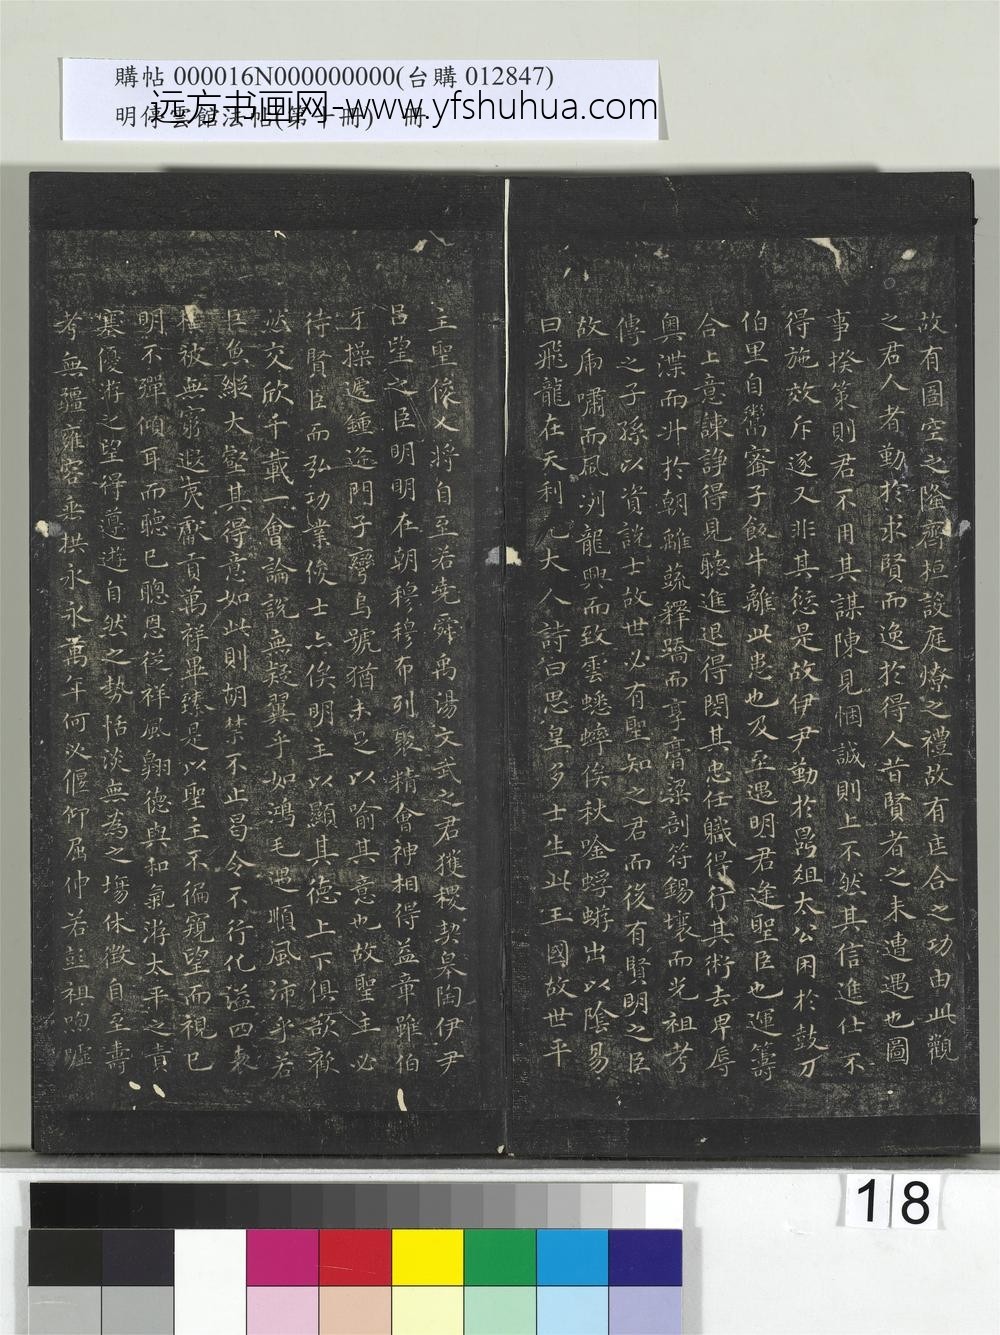 購帖 000016N000000000(台購 012847)
明停雲館法帖(第十冊) 冊
远方书画网-www.yfshuhua.com
故有圄空之隆齊桓設庭燎之禮故有匡合之功由此觀
之君人者勤於求賢而逸於得人昔賢者之未遭遇也圖
事揆策則君不用其謀陳見悃誠則上不然其信進仕不
得施效斥逐又非其愆是故伊尹勤於鼎俎太公困於鼓刀
伯里自鬻甯子飯牛離此患也及至遇明君逢聖臣也運籌
合上意諫諍得見聽進退得關其忠任職得行其術去卑辱
奧渫而升於朝離蔬釋蹻而享膏梁剖符錫壤而光祖考
傳之子孫以資說士故世必有聖知之君而後有賢明之臣
故虎嘯而風洌龍興而致雲蟋蟀俟秋唫蜉蝣出以陰易
曰飛龍在天利見大人詩曰思皇多士生此王國故世平
主聖俊乂將自至若堯舜禹湯文武之君獲稷契皋陶伊尹
呂望之臣明明在朝穆穆布列聚精會神相得益章雖伯
牙操遞鍾逄門子彎烏號猶未足以喻其意也故聖主必
待賢臣而弘功業俊士亦俟明主以顯其德上下俱欲歡
然交欣千載一會論說無疑翼乎如鴻毛遇順風沛乎若
巨魚縱大壑其得意如此則胡禁不止曷令不行化溢四表
橫被無窮遐夷獻貢萬祥畢臻是以聖主不徧窺望而視已
明不殫傾耳而聽已聰恩從祥風翱德與和氣游太平之責
塞優游之望得遵遊自然之勢恬淡無為之塲休徵自至壽
考無疆雍容垂拱永永萬年何必偃仰屈伸若彭祖呴噓
18